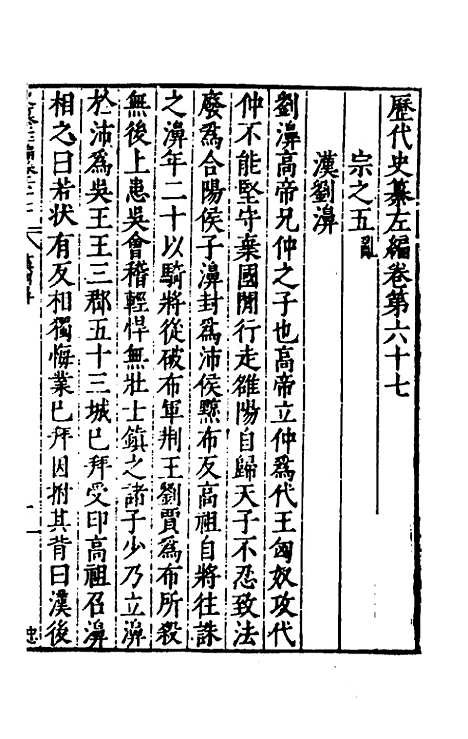 歷代史纂左編卷第六十七
宗之五亂
漢劉濞
劉濞高帝兄仲之子也高帝立仲爲代王匈奴攻代
仲不能堅守棄國閒行走雒陽自歸天子不忍致法
廢爲合陽侯子濞封爲沛侯黥布反高祖自將往誅
之濞年二十以騎將從破布軍荆王劉賈爲布所殺
無後上患吳會稽輕悍無壯士鎮之諸子少乃立濞
於沛爲吳王王三郡五十三城已拜受印高祖召濞
相之曰若状有反相獨悔業已拜因拊其背曰漢後